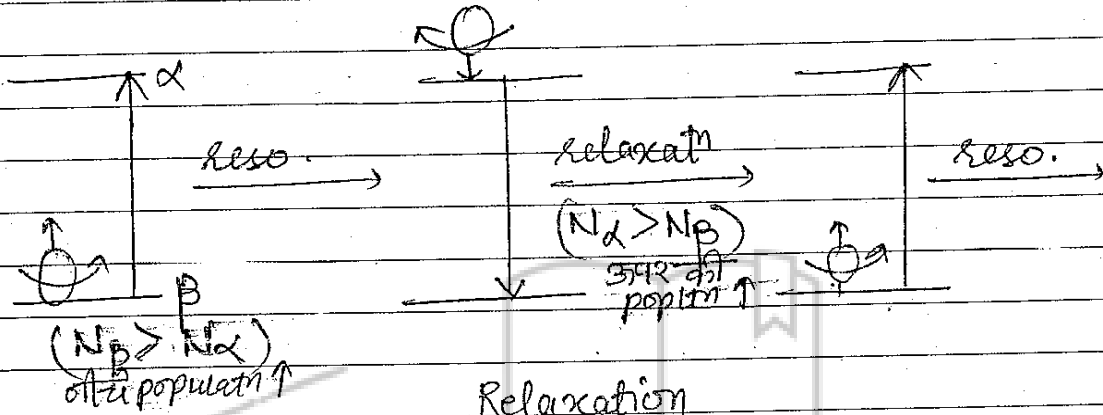 α
reso. relaxatⁿ reso.
(Nα > Nβ)
ऊपर की
β popltn ↑
(Nβ > Nα)
populatn ↑
Relaxation